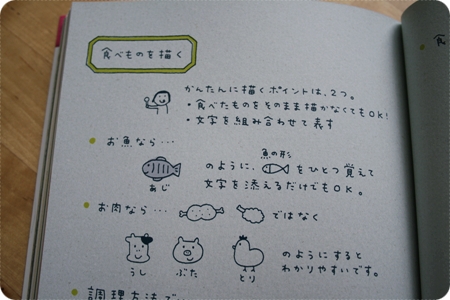 食べものを描く
かんたんに描くポイントは、2つ。
・食べたものをそのまま描かなくてもOK!
・文字を組み合わせて表す
・お魚なら・・・
魚の形
のように、をひとつ覚えて
あじ
文字を添えるだけでもOK。
・お肉なら・・・ではなく
うし ぶた とり
のようにすると
わかりやすいです。
・調理方法で・・